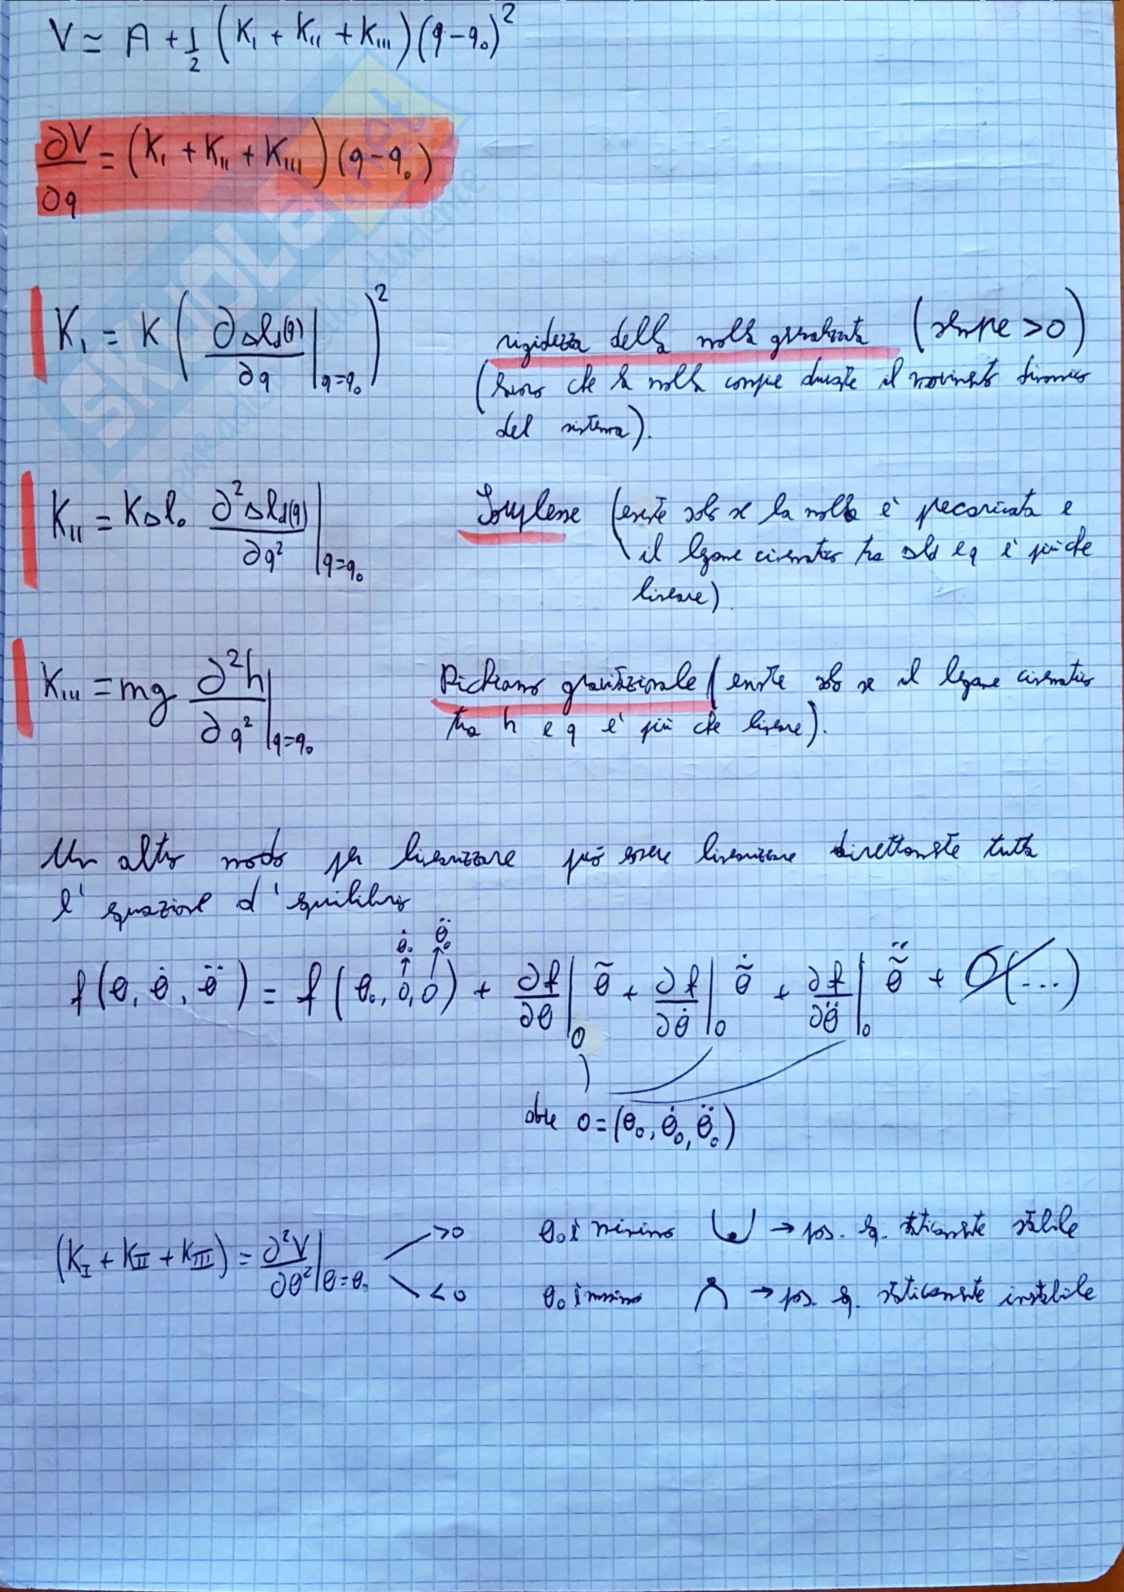 V ≃ A + 1/2 (K_I + K_II + K_III)(q - q₀)²
∂V/∂q = (K_I + K_II + K_III)(q - q₀)
K_I = K (∂Δl_d(q)/∂q |_{q=q₀})² rigidezza della molla generalizzata (sempre >0)
(lavoro che la molla compie durante il movimento dinamico
del sistema).
K_II = KΔl₀ ∂²Δl_d(q)/∂q² |_{q=q₀} (esiste solo se la molla è precaricata e
il legame cinematico tra Δld e q è più che
lineare)
K_III = mg ∂²h/∂q² |_{q=q₀} Richiamo gravitazionale (esiste solo se il legame cinematico
tra h e q è più che lineare).
Un altro modo per linearizzare può essere linearizzare direttamente tutta
l'equazione d'equilibrio
θ̇₀ θ̈₀
f(θ, θ̇, θ̈) = f(θ₀, 0, 0) + ∂f/∂θ |₀ θ̃ + ∂f/∂θ̇ |₀ θ̃̇ + ∂f/∂θ̈ |₀ θ̃̈ + O(...)
dove 0 = (θ₀, θ̇₀, θ̈₀)
>0 θ₀ è minimo → pos. eq. staticamente stabile
(K_I + K_II + K_III) = ∂²V/∂θ² |_{θ=θ₀}
<0 θ₀ è → pos. eq. staticamente instabile
SKUOLA.net